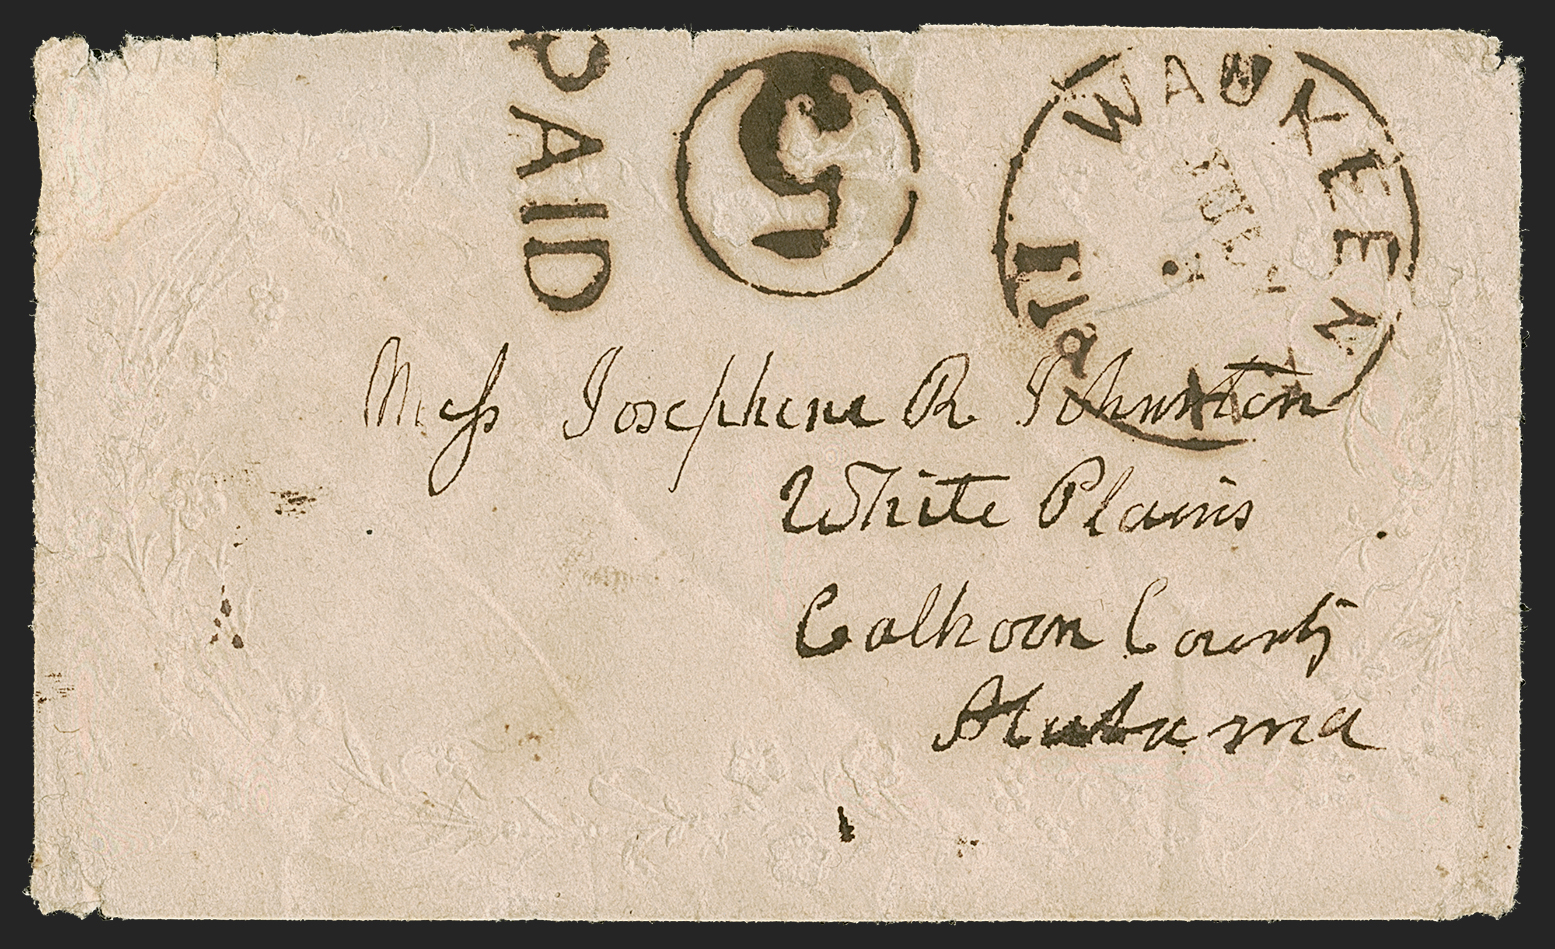 PAID
5
WAUKEEN
JUL
Mess Josephene R Johnston
White Plains
Calhoon County
Alabama